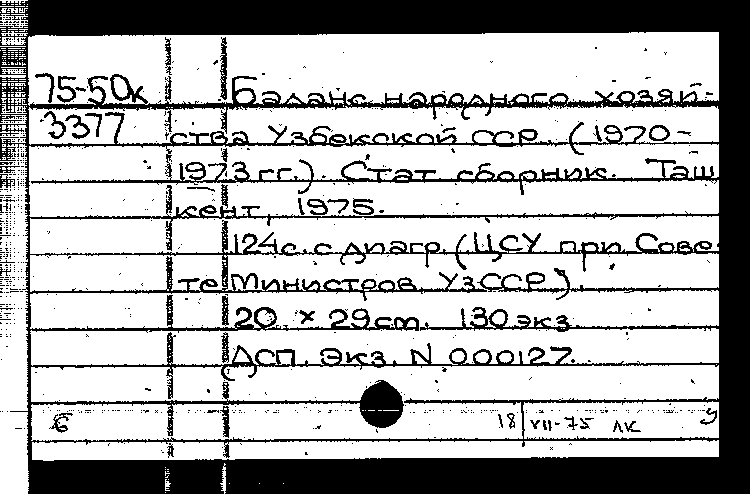 75-50к Баланс народного хозяй-
3377 ства Узбекской ССР. (1970-
1973 гг.). Стат сборник. Таш
кент, 1975.
124с. с диагр. (ЦСУ при Сове-
те Министров УзССР).
20 × 29 cm. 130 экз.
ДСП. Экз. N 000127.
18 VII-75 ЛК У